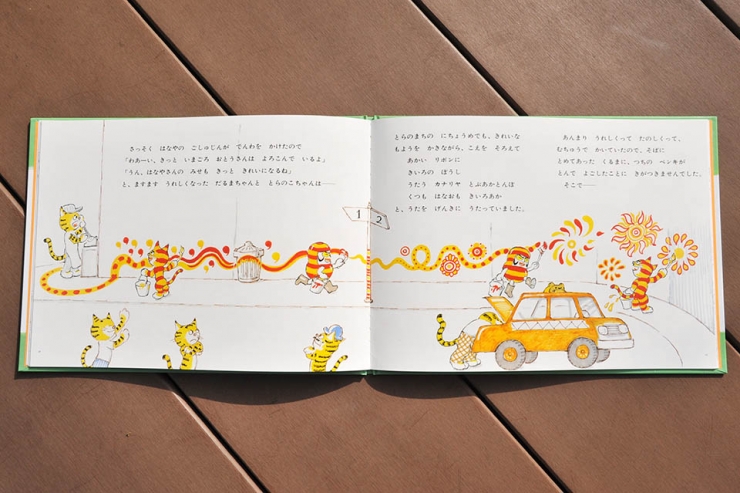 さっそく はなやの ごしゅじんが でんわを かけたので
「わあーい、きっと いまごろ おとうさんは よろこんで いるよ」
「うん、はなやさんの みせも きっと きれいになるね」
と、ますます うれしくなった だるまちゃんと とらのこちゃんは——
1 2
とらのまちの にちょうめでも、きれいな
もようを かきながら、こえを そろえて
あかい リボンに
きいろの ぼうし
うたう カナリヤ とぶあかとんぼ
くつも はなおも きいろあか
と、うたを げんきに うたっていました。
あんまり うれしくって たのしくって、
むちゅうで かいていたので、そばに
とめてあった くるまに、つちの ペンキが
とんで よごしたことに きがつきませんでした。
そこで——